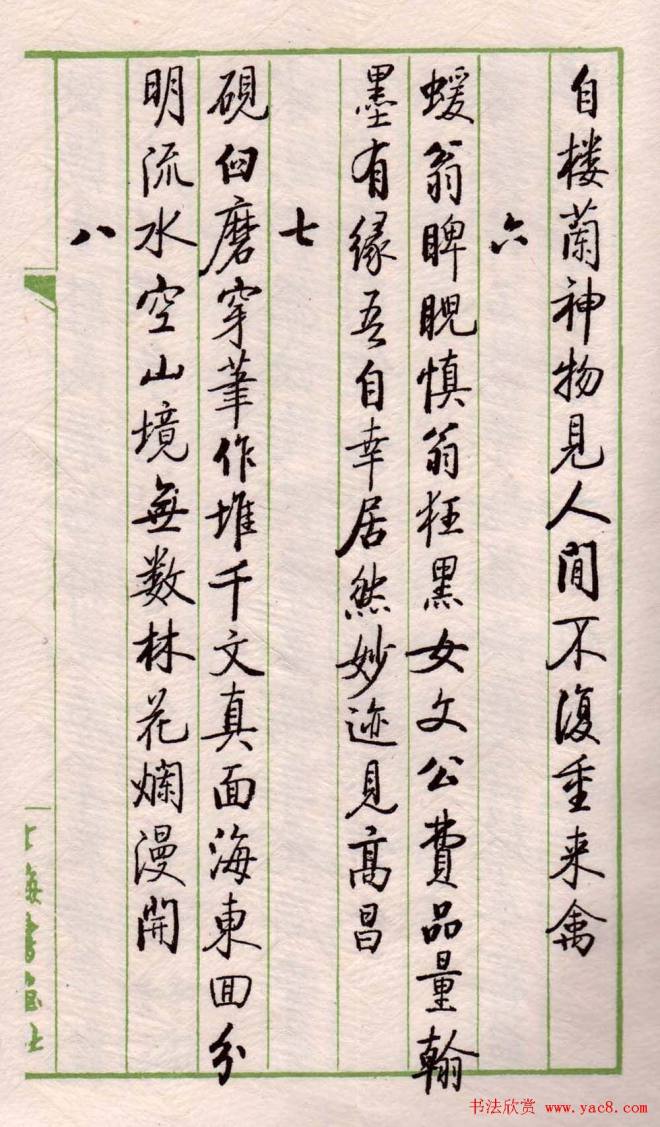 自楼蘭神物見人間不復重来禽
六
蝯翁睥睨慎翁狂黑女文公費品量翰
墨有缘吾自幸居然妙迹見高昌
七
硯臼磨穿筆作堆千文真面海東回分
明流水空山境無数林花爛漫開
八
上海書画社
书法欣赏 www.yac8.com